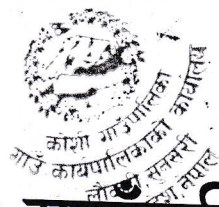 कोशी गाउँपालिका
गाउँ कार्यपालिकाको कार्यालय
लौकही, सुनसरी
नेपाल